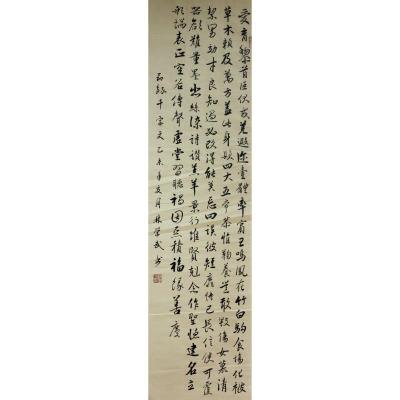 愛育黎首臣伏戎羌遐邇壹體率賓王鳴鳳在竹白駒食場化被
草木賴及萬方蓋此身髮四大五常恭惟鞠養豈敢毀傷女慕清
絜男效才良知過必改得能莫忘罔談彼短靡恃己長信使可覆
器欲難量墨悲絲染詩讚羔羊景行維賢剋念作聖德建名立
形端表正空谷傳聲虛堂習聽禍因惡積福緣善慶
節錄千字文乙未年夏月書